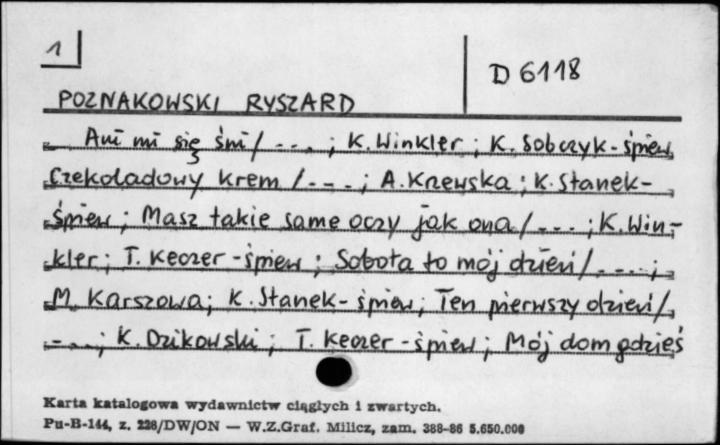 1
D 6118
POZNAKOWSKI RYSZARD
Ani mi się śni / - - - ; K. Winkler ; K. Sobczyk - śpiew,
Czekoladowy krem / - - - ; A. Knewska ; K. Stanek -
śpiew ; Masz takie same oczy jak ona / - - - ; K. Win-
kler ; T. Keczer - śpiew ; Sobota to mój dzień / - - - ;
M. Karszowa ; K. Stanek - śpiew ; Ten pierwszy dzień /
- - - ; K. Dzikowski ; T. Keczer - śpiew ; Mój dom gdzieś
Karta katalogowa wydawnictw ciągłych i zwartych.
Pu-B-144, z. 228/DW/ON — W.Z.Graf. Milicz, zam. 388-86 5.650.000